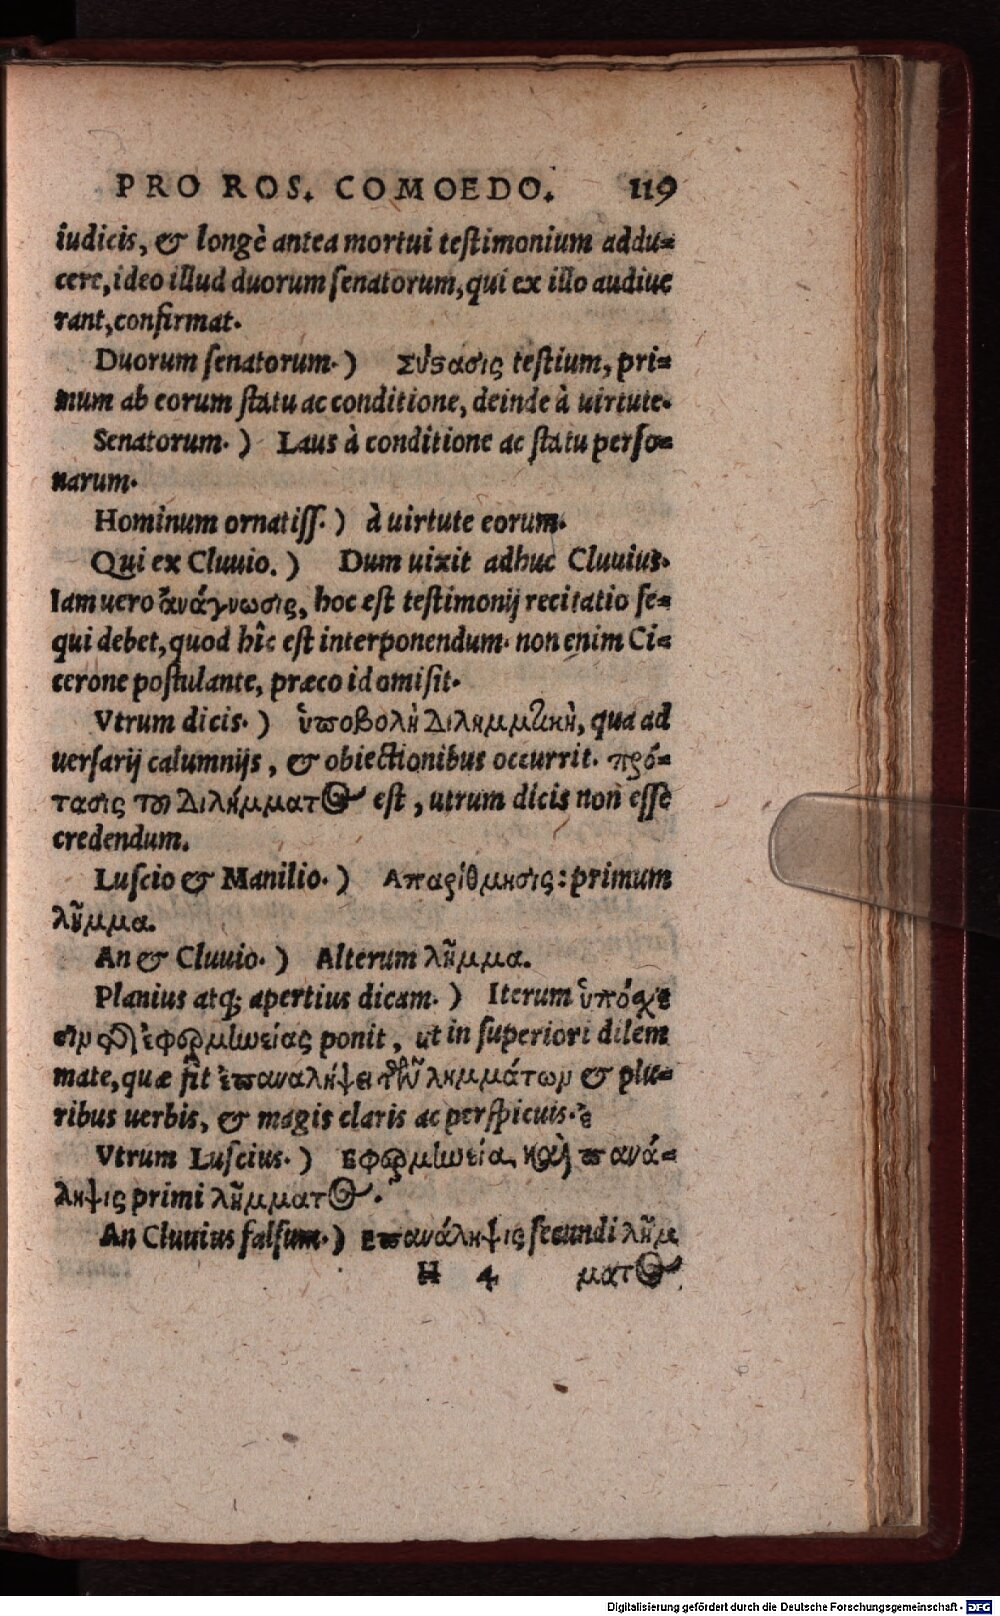 PRO ROS. COMOEDO. 119
iudicis, & longè antea mortui teſtimonium addu=
cere, ideo illud duorum ſenatorum, qui ex illo audiue
rant, confirmat.
Duorum ſenatorum. ) Σύϛασις teſtium, pri=
mum ab eorum ſtatu ac conditione, deinde à uirtute.
Senatorum. ) Laus à conditione ac ſtatu perſo=
narum.
Hominum ornatiſſ. ) à uirtute eorum.
Qui ex Cluuio. ) Dum uixit adhuc Cluuius.
Iam uero ἀνάγνωσις, hoc eſt teſtimonij recitatio ſe=
qui debet, quod hîc eſt interponendum. non enim Ci=
cerone poſtulante, præco id omiſit.
Vtrum dicis. ) ὑποβολὴ Διλημματικὴ, qua ad
uerſarij calumnijs, & obiectionibus occurrit. πρό=
τασις τοῦ Διλήμματος eſt, utrum dicis non eſſe
credendum.
Luſcio & Manilio. ) Απαρίθμησις: primum
λῆμμα.
An & Cluuio. ) Alterum λῆμμα.
Planius atq; apertius dicam. ) Iterum ὑπόσχε
σιν ἐφερμηνείας ponit, ut in ſuperiori dilem
mate, quæ fit ἐπαναλήψει τῶν λημμάτων & plu=
ribus uerbis, & magis claris ac perſpicuis.
Vtrum Luſcius. ) Εφερμηνεία, καὶ πανά=
ληψις primi λήμματος.
An Cluuius falſum. ) Επανάληψις ſecundi λήμ
H 4 ματος
Digitalisierung gefördert durch die Deutsche Forschungsgemeinschaft - DFG